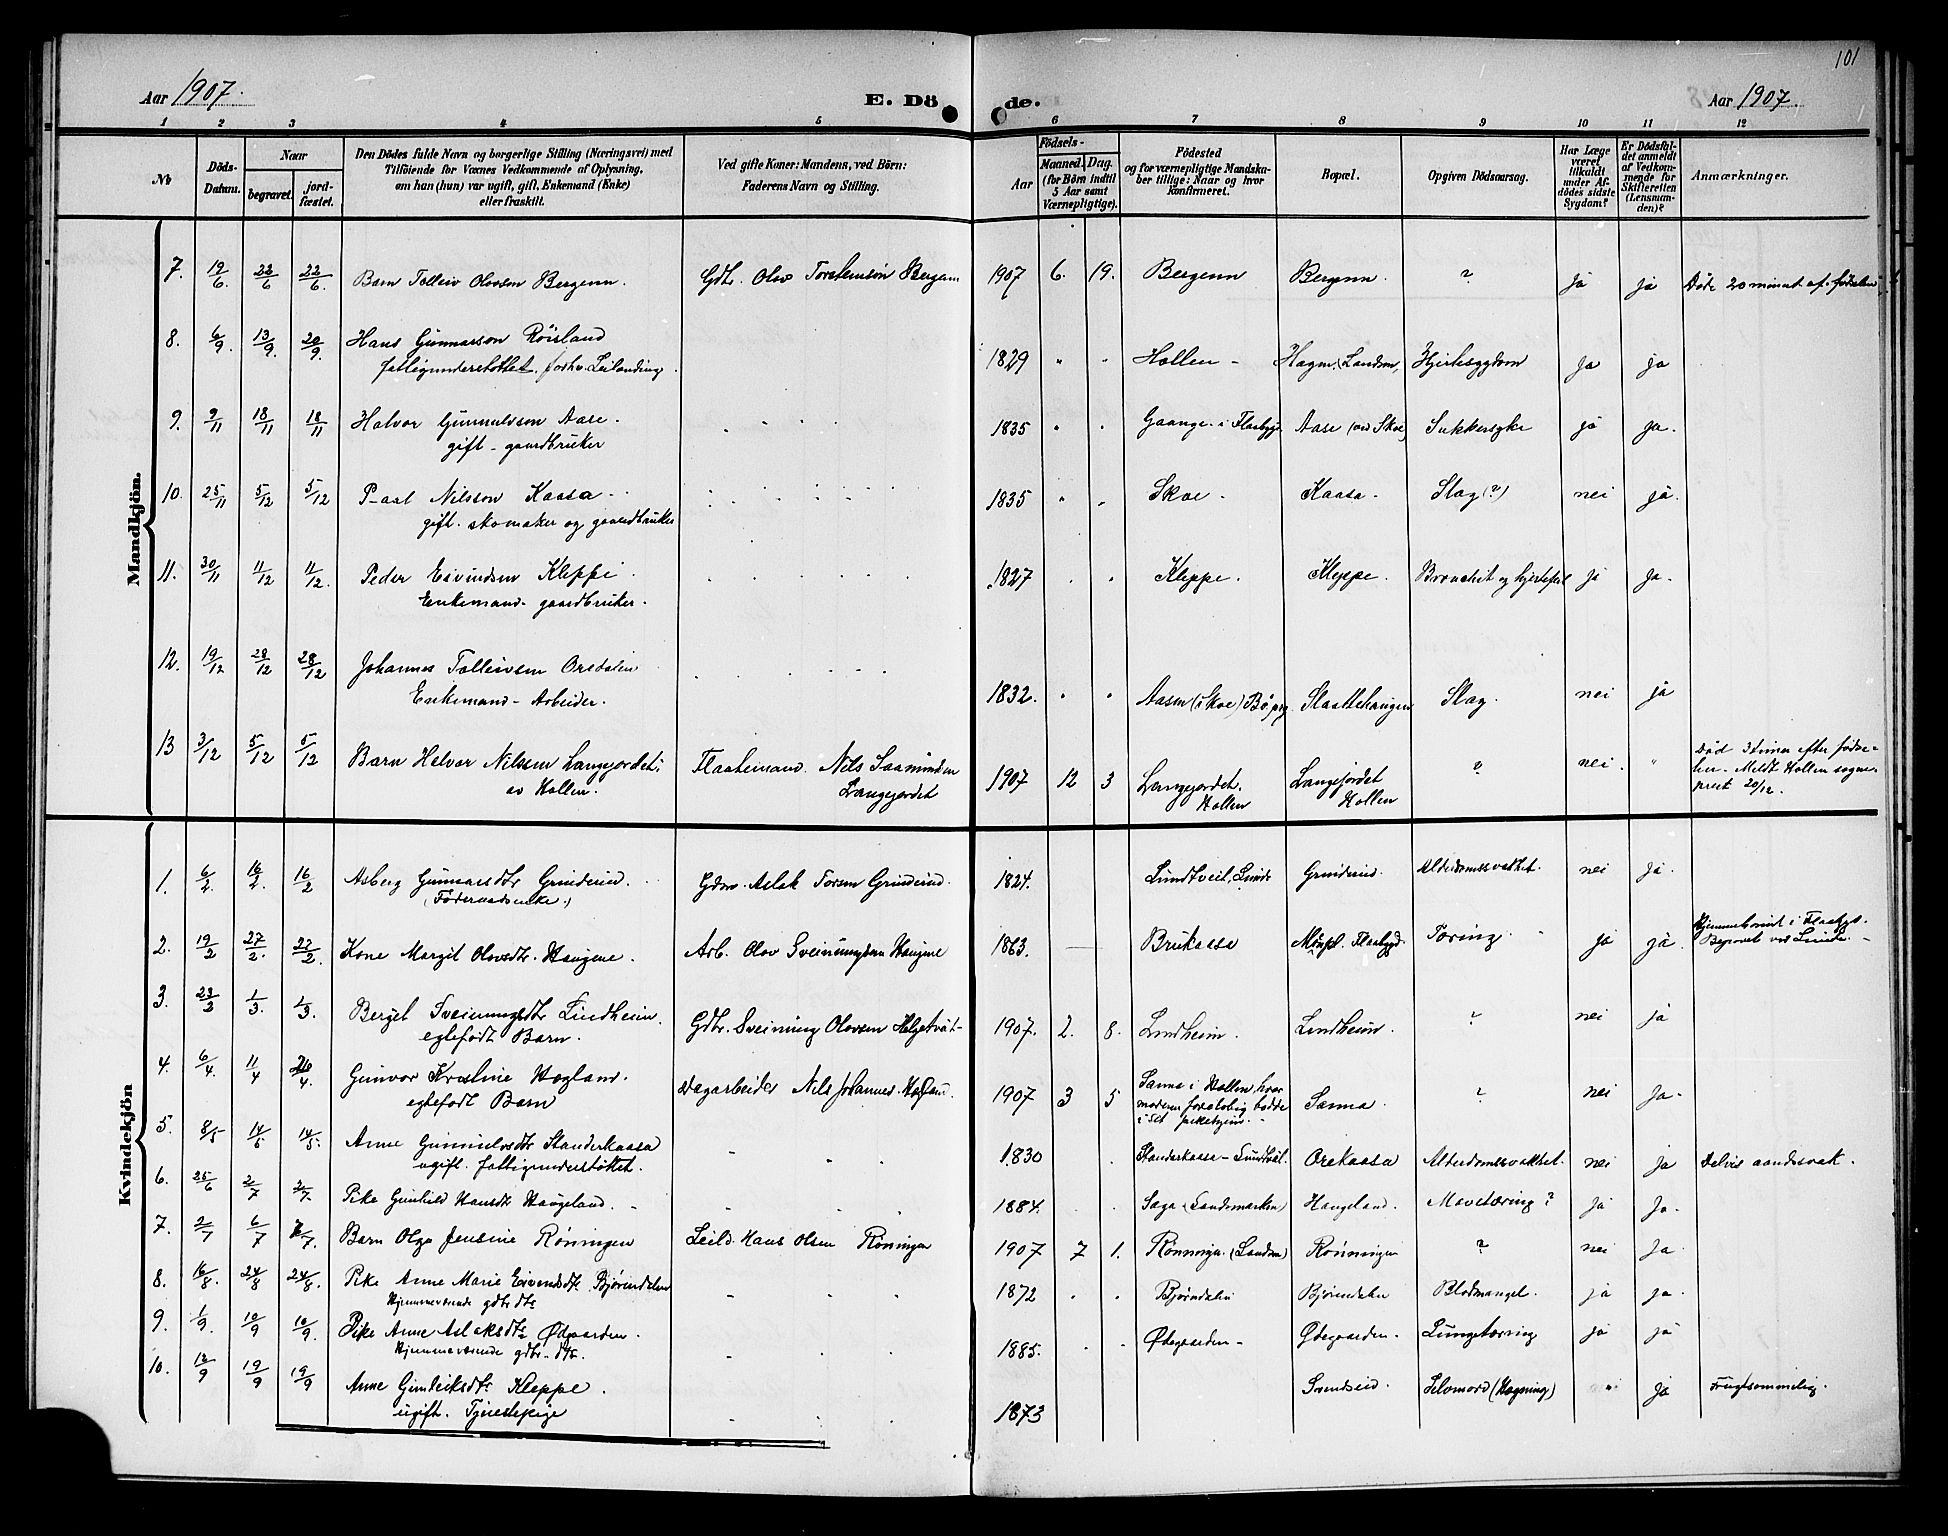 101
Aar 1907.
E. Dö
de.
Aar 1907.
1 2 3 4 5 6 7 8 9 10 11 12
No
Döds-Datum.
Naar
begravet.
jord-fæstet.
Den Dödes fulde Navn og borgerlige Stilling (Næringsvei) med
Tilföiende for Voxnes Vedkommende af Oplysning,
om han (hun) var ugift, gift, Enkemand (Enke)
eller fraskilt.
Ved gifte Koner: Mandens, ved Börn:
Faderens Navn og Stilling.
Födsels-
Aar
Maaned. Dag.
(for Börn indtil
5 Aar samt
Værnepligtige).
Födested
og for værnepligtige Mandska-
ber tillige: Naar og hvor
konfirmeret.
Bopæl.
Opgiven Dödsaarsag.
Har Læge
været
tilkaldt
under Af-
dödes sidste
Sygdom?
Er Dödsfal-
det anmeldt
af Vedkom-
mende for
Skifteretten
(Lensman-
den)?
Anmærkninger.
Mandkjön.
7. 19/6. 22/6 22/6. Barn Tolleiv Olovsen Bergenn. Gdbr. Olov Torstensön Bergenn 1907 6. 19. Bergenn Bergenn. ? ja ja Döde 20 minut ef. födselen
8. 6/9. 13/9. 20/9. Hans Gunnarsson Röisland
fattigunderstöttet. forhv. Leilending. 1829 " " Hollen - Hagen (Landsm. Hjertesygdom Ja ja
9. 9/11 18/11 18/11 Halvor Gunnulvson Aase.
gift - gaardbruker 1835 " . i Flaabygd Aase (ved Skoe) Sukkersyke ja ja.
10. 25/11 5/12 5/12 Paal Nilsson Kaasa
gift. skomaker og gaardbruker 1835 " " Skoe. Kaasa. Slag (?) nei jà.
11. 30/11 11/12 11/12. Peder Eivindsen Kleppe.
Enkemand - gaardbruker. 1827 " " Kleppe. Kleppe. Bronchit og hjertefeil ja Ja.
12. 19/12 28/12 28/12 Johannes Tolleivsen Oredalen
Enkemand - Arbeider. 1832. " " Aasen (i Skoe) Bö prg Slaattehaugen Slag. nei jà
13 3/12 5/12 5/12 Barn Helvor Nilssen Langejordet.
av Hollen. Flaatemand. Nils Saamundsen
Langejordet 1907 12 3 Langejordet.
Hollen Langejordet
Hollen ? nei. " Död 3 timer efter födse-
len. Meldt Hollen sogne-
prest 20/12.
Kvindekjön
1. 6/2. 16/2. 16/2 Asberg Gunnarsdtr Grinderud.
(Föderaadsenke.) Gdm. Aslak Torsen Grinderud. 1824. Lundtveit, Lunde Grinderud. Alderdomssvakhet. nei Ja.
2. 19/2 27/2. 22/2. Kone Margit Olovsdtr. Haugene. Arb. Olov Sveinungsen Haugene 1863. — Brukaasa Flaabygd. Tæring. ja jà. Hjemmebrændt i Flaabygd.
Begravet ved Lunde. -
3. 23/2 1/3. 1/3. Berget Sveinungsdtr Lindheim.
egtefödt Barn. Gdbr. Sveinung Olovsen Helgetvæt- 1907. 2. 8. Lindheim. Lindheim. ? nei jà
4. 6/4. 11/4 26/4. Gunvor Kristine Hogland.
egtefödt Barn Dagarbeider Nils Johannes. Hogland. 1907 3 5 Sanna i Hollen, hvor
moderen forelöbig bodde
i Sanna. ? nei Ja-
5. 8/5 14/5 14/5. Anne Gunnulvsdtr Standerkaasa
ugift. fattigunderstöttet. 1830 . Standerkaasa - Lundtvæt. Orekaasa Alderdomssvakhet. nei Ja Delvis aandssvak.
6. 25/6 2/7 2/7. Pike Gunhild Hansdtr Haugeland. 1884. . Saga (Sandsmarken) Haugeland. Mavetæring? Ja Ja.
7. 2/7 6/7 /7. Barn Olga Jensine Rönningen Leild. Hans Olsen Röningen 1907 7 1. Rönningen. (Landsm) Rönningen ? nei Ja.
8. 16/8. 24/8 24/8. Pike Anne Marie Eivendsdtr. Bjørendalen
Hjemmeværende gdbr dtr 1872 . . Bjørndalen Bjørendalen Blodmangel. ja ja.
9. 1/9. 10/9 10/9. Pike Anne Aslaksdtr Ødgaarden.
Hjemmeværende gdbr- dtr. 1885. . . Ødegaarden- Ødegaarden. Lungetæring ja ja
10. 12/9 19/9 19/9 Anne Gunleiksdtr. Kleppe.
ugift. Tjenestepige 1873 Svendseid. Selvmord (Hægning) " Ja Frugtsommelig.